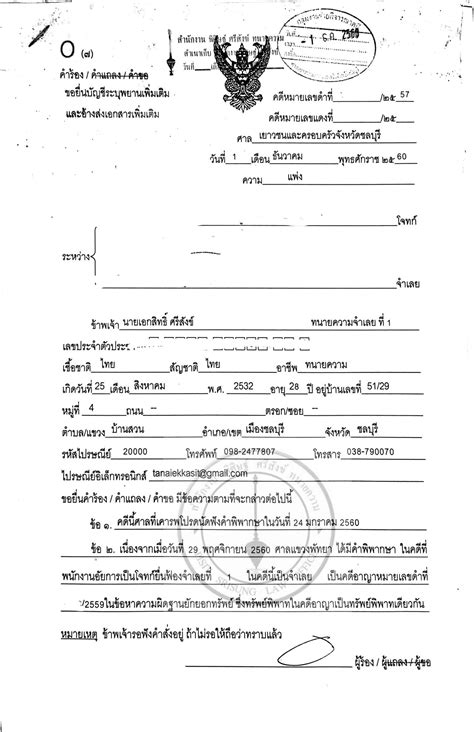 สำนักงาน พิสิษฐ์ ศรีสังข์ ทนายความ
๐ (๗)
คำร้อง / คำแถลง / คำขอ
ขอยื่นบัญชีระบุพยานเพิ่มเติม
และอ้างส่งเอกสารเพิ่มเติม
คดีหมายเลขดำที่ /๒๕ 57
คดีหมายเลขแดงที่ /๒๕
ศาล เยาวชนและครอบครัวจังหวัดชลบุรี
วันที่ 1 เดือน ธันวาคม พุทธศักราช ๒๕ 60
ความ แพ่ง
โจทก์
ระหว่าง
จำเลย
ข้าพเจ้า นายเอกสิทธิ์ ศรีสังข์ ทนายความจำเลย ที่ 1
เลขประจำตัวประ
เชื้อชาติ ไทย สัญชาติ ไทย อาชีพ ทนายความ
เกิดวันที่ 25 เดือน สิงหาคม พ.ศ. 2532 อายุ 28 ปี อยู่บ้านเลขที่ 51/29
หมู่ที่ 4 ถนน -- ตรอก/ซอย --
ตำบล/แขวง บ้านสวน อำเภอ/เขต เมืองชลบุรี จังหวัด ชลบุรี
รหัสไปรษณีย์ 20000 โทรศัพท์ 098-2477807 โทรสาร 038-790070
ไปรษณีย์อิเล็กทรอนิกส์ tanaiekkasit@gmail.com
ขอยื่นคำร้อง / คำแถลง / คำขอ มีข้อความตามที่จะกล่าวต่อไปนี้
ข้อ ๑. คดีนี้ศาลที่เคารพโปรดนัดฟังคำพิพากษาในวันที่ 24 มกราคม 2560
ข้อ ๒. เนื่องจากเมื่อวันที่ 29 พฤศจิกายน 2560 ศาลแขวงพัทยา ได้มีคำพิพากษา ในคดีที่
พนักงานอัยการเป็นโจทก์ยื่นฟ้องจำเลยที่ 1 ในคดีนี้เป็นจำเลย เป็นคดีอาญาหมายเลขดำที่
/2559ในข้อหาความผิดฐานยักยอกทรัพย์ ซึ่งทรัพย์พิพาทในคดีอาญาเป็นทรัพย์พิพาทเดียวกัน
หมายเหตุ ข้าพเจ้ารอฟังคำสั่งอยู่ ถ้าไม่รอให้ถือว่าทราบแล้ว
ผู้ร้อง / ผู้แถลง / ผู้ขอ